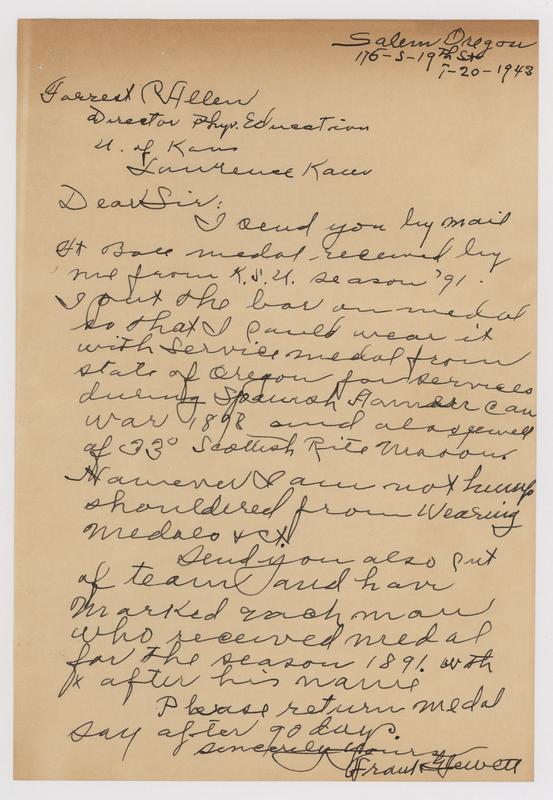 Salem Oregon
175-S-19th St
1-20-1943
Forrest C Allen
Director Phys. Education
U. of Kans
Lawrence Kans
Dear Sir:
I send you by mail
Ft Ball medal received by
me from K.S.U. season '91.
I put the bar on medal
so that I could wear it
with Service medal from
state of Oregon for services
during Spanish American
war 1898 and also jewell
of 33° Scottish Rite Masons
However I am not hump
shouldered from wearing
Medals & ct.
Send you also pct
of team and have
marked each man
who received medal
for the season 1891. with
x after his name
Please return medal
say after 90 days.
Sincerely yours
Frank Jewett